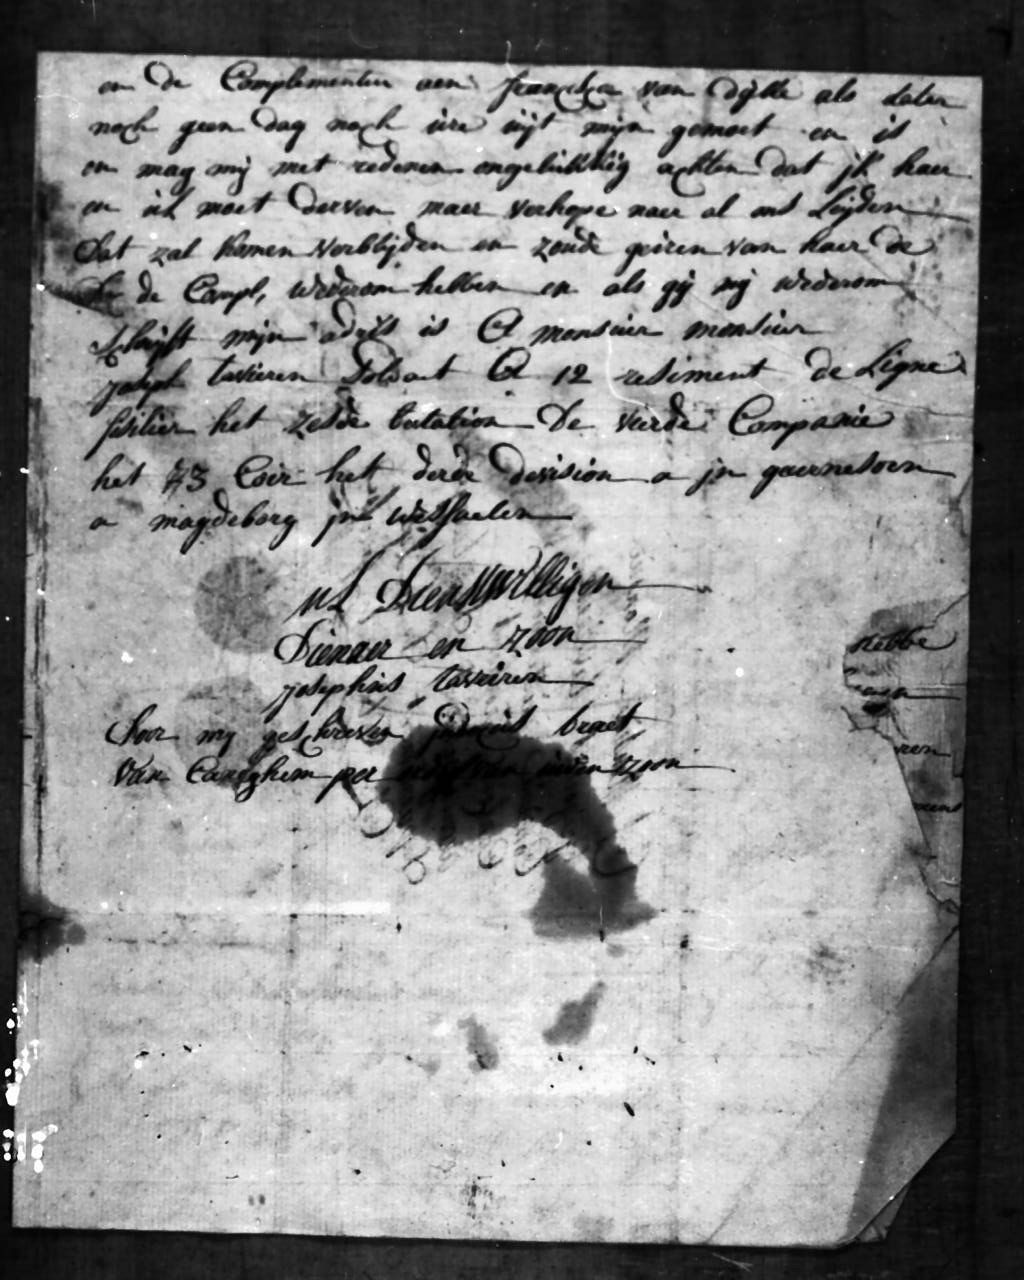 en de Complementen aen francisca van Dijkke als laten
noch geen dag noch ure uijt mijn gemoet en is
en mag mij met redenen ongelukkig achten dat jk haer
en ul moet derven maer verhope naer al ons Leijden
Dat zal komen verblijden en zoude geiren van haer de
de Compl, wederom hebben en als gij mij wederom
schrijft mijn adres is A monsieur monsieur
joseph tavieren Soldaet A 12 resiment de Ligne
fusilier het zesde batation De vierde Companie
het 73 Coer het derde devision a jn guernesoen
a magdeborg jn wesfaelen
UL Dienstwilligen
Dienaer en zoon
josephus tavieren
Door mij geschreven braet
van Caneghem per van uwen zoon
hebbe
ren
mens